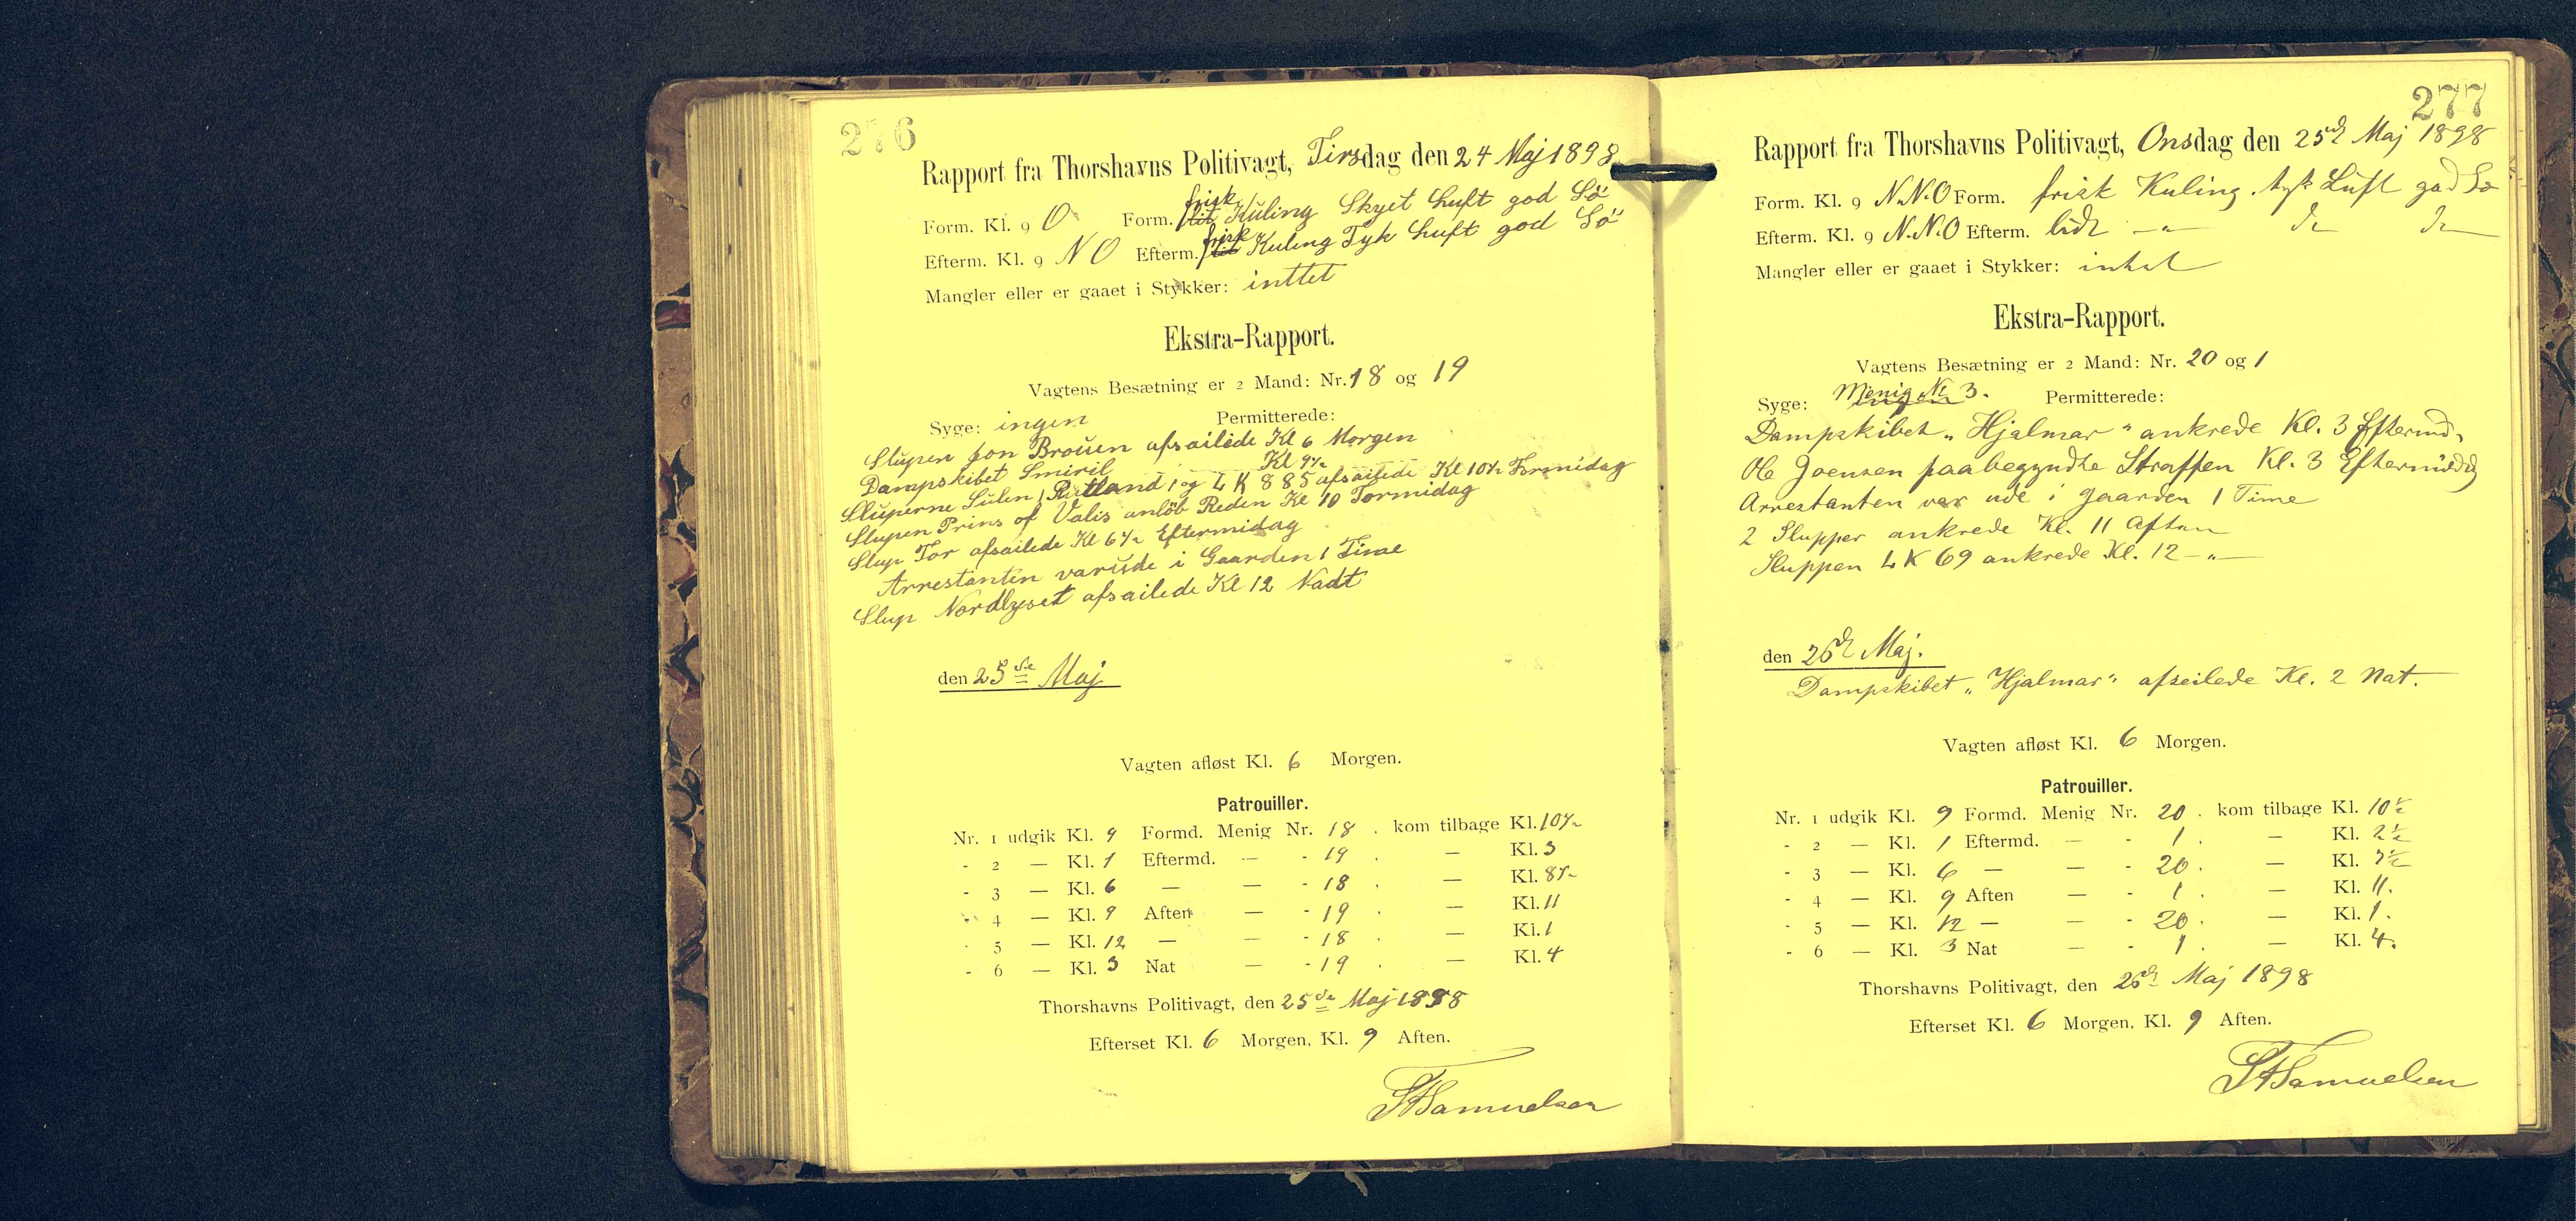 276
Rapport fra Thorshavns Politivagt, Tirsdag den 24 Maj 1898
Form. Kl. 9 O Form. frisk Kuling Skyet Luft god Sö
Efterm. Kl. 9 NO Efterm. frisk Kuling Tyk Luft god Sö
Mangler eller er gaaet i Stykker: inttet
Ekstra-Rapport.
Vagtens Besætning er 2 Mand: Nr. 18 og 19
Syge: ingen Permitterede:
Slupen Jon Brouen afsailede Kl 6 Morgen
Dampskibet Smiril — — Kl 9½
Sluperne Sulen, Rutland, og LK 885 afsailede Kl 10½ Formidag
Slupen Prins of Valis anlöb Reden Kl 10 Formidag
Slup Tor afsailede Kl 6½ Eftermidag
Arrestanten var ude i Gaarden 1 Time
Slup Nordlyset afsailede Kl 12 Nadt
den 25de Maj
Vagten afløst Kl. 6 Morgen.
Patrouiller.
Nr. 1 udgik Kl. 9 Formd. Menig Nr. 18 . kom tilbage Kl. 10½
- 2 — Kl. 1 Eftermd. — - 19 . — Kl. 3
- 3 — Kl. 6 — — - 18 . — Kl. 8½
- 4 — Kl. 9 Aften — - 19 . — Kl. 11
- 5 — Kl. 12 — — - 18 . — Kl. 1
- 6 — Kl. 3 Nat — - 19 . — Kl. 4
Thorshavns Politivagt, den 25de Maj 1898
Efterset Kl. 6 Morgen, Kl. 9 Aften.
Samuelsen
277
Rapport fra Thorshavns Politivagt, Onsdag den 25de Maj 1898
Form. Kl. 9 N.N.O Form. frisk Kuling. tyk Luft god Sø
Efterm. Kl. 9 N.N.O Efterm. lidt —"— do do
Mangler eller er gaaet i Stykker: intet
Ekstra-Rapport.
Vagtens Besætning er 2 Mand: Nr. 20 og 1
Syge: Menig Nr 3. Permitterede:
Dampskibet „Hjalmar" ankrede Kl. 3 Eftermd.
Ole Joensen paabegyndte Straffen Kl. 3 Eftermiddag
Arrestanten var ude i gaarden 1 Time
2 Slupper ankrede Kl. 11 Aften
Sluppen LK 69 ankrede Kl. 12 —"—
den 26de Maj.
Dampskibet „Hjalmar" afseilede Kl. 2 Nat.
Vagten afløst Kl. 6 Morgen.
Patrouiller.
Nr. 1 udgik Kl. 9 Formd. Menig Nr. 20 . kom tilbage Kl. 10½
- 2 — Kl. 1 Eftermd. — - 1 . — Kl. 2½
- 3 — Kl. 6 — — - 20 . — Kl. 7½
- 4 — Kl. 9 Aften — - 1 . — Kl. 11.
- 5 — Kl. 12 — — - 20 . — Kl. 1.
- 6 — Kl. 3 Nat — - 1 . — Kl. 4.
Thorshavns Politivagt, den 26de Maj 1898
Efterset Kl. 6 Morgen, Kl. 9 Aften.
Samuelsen